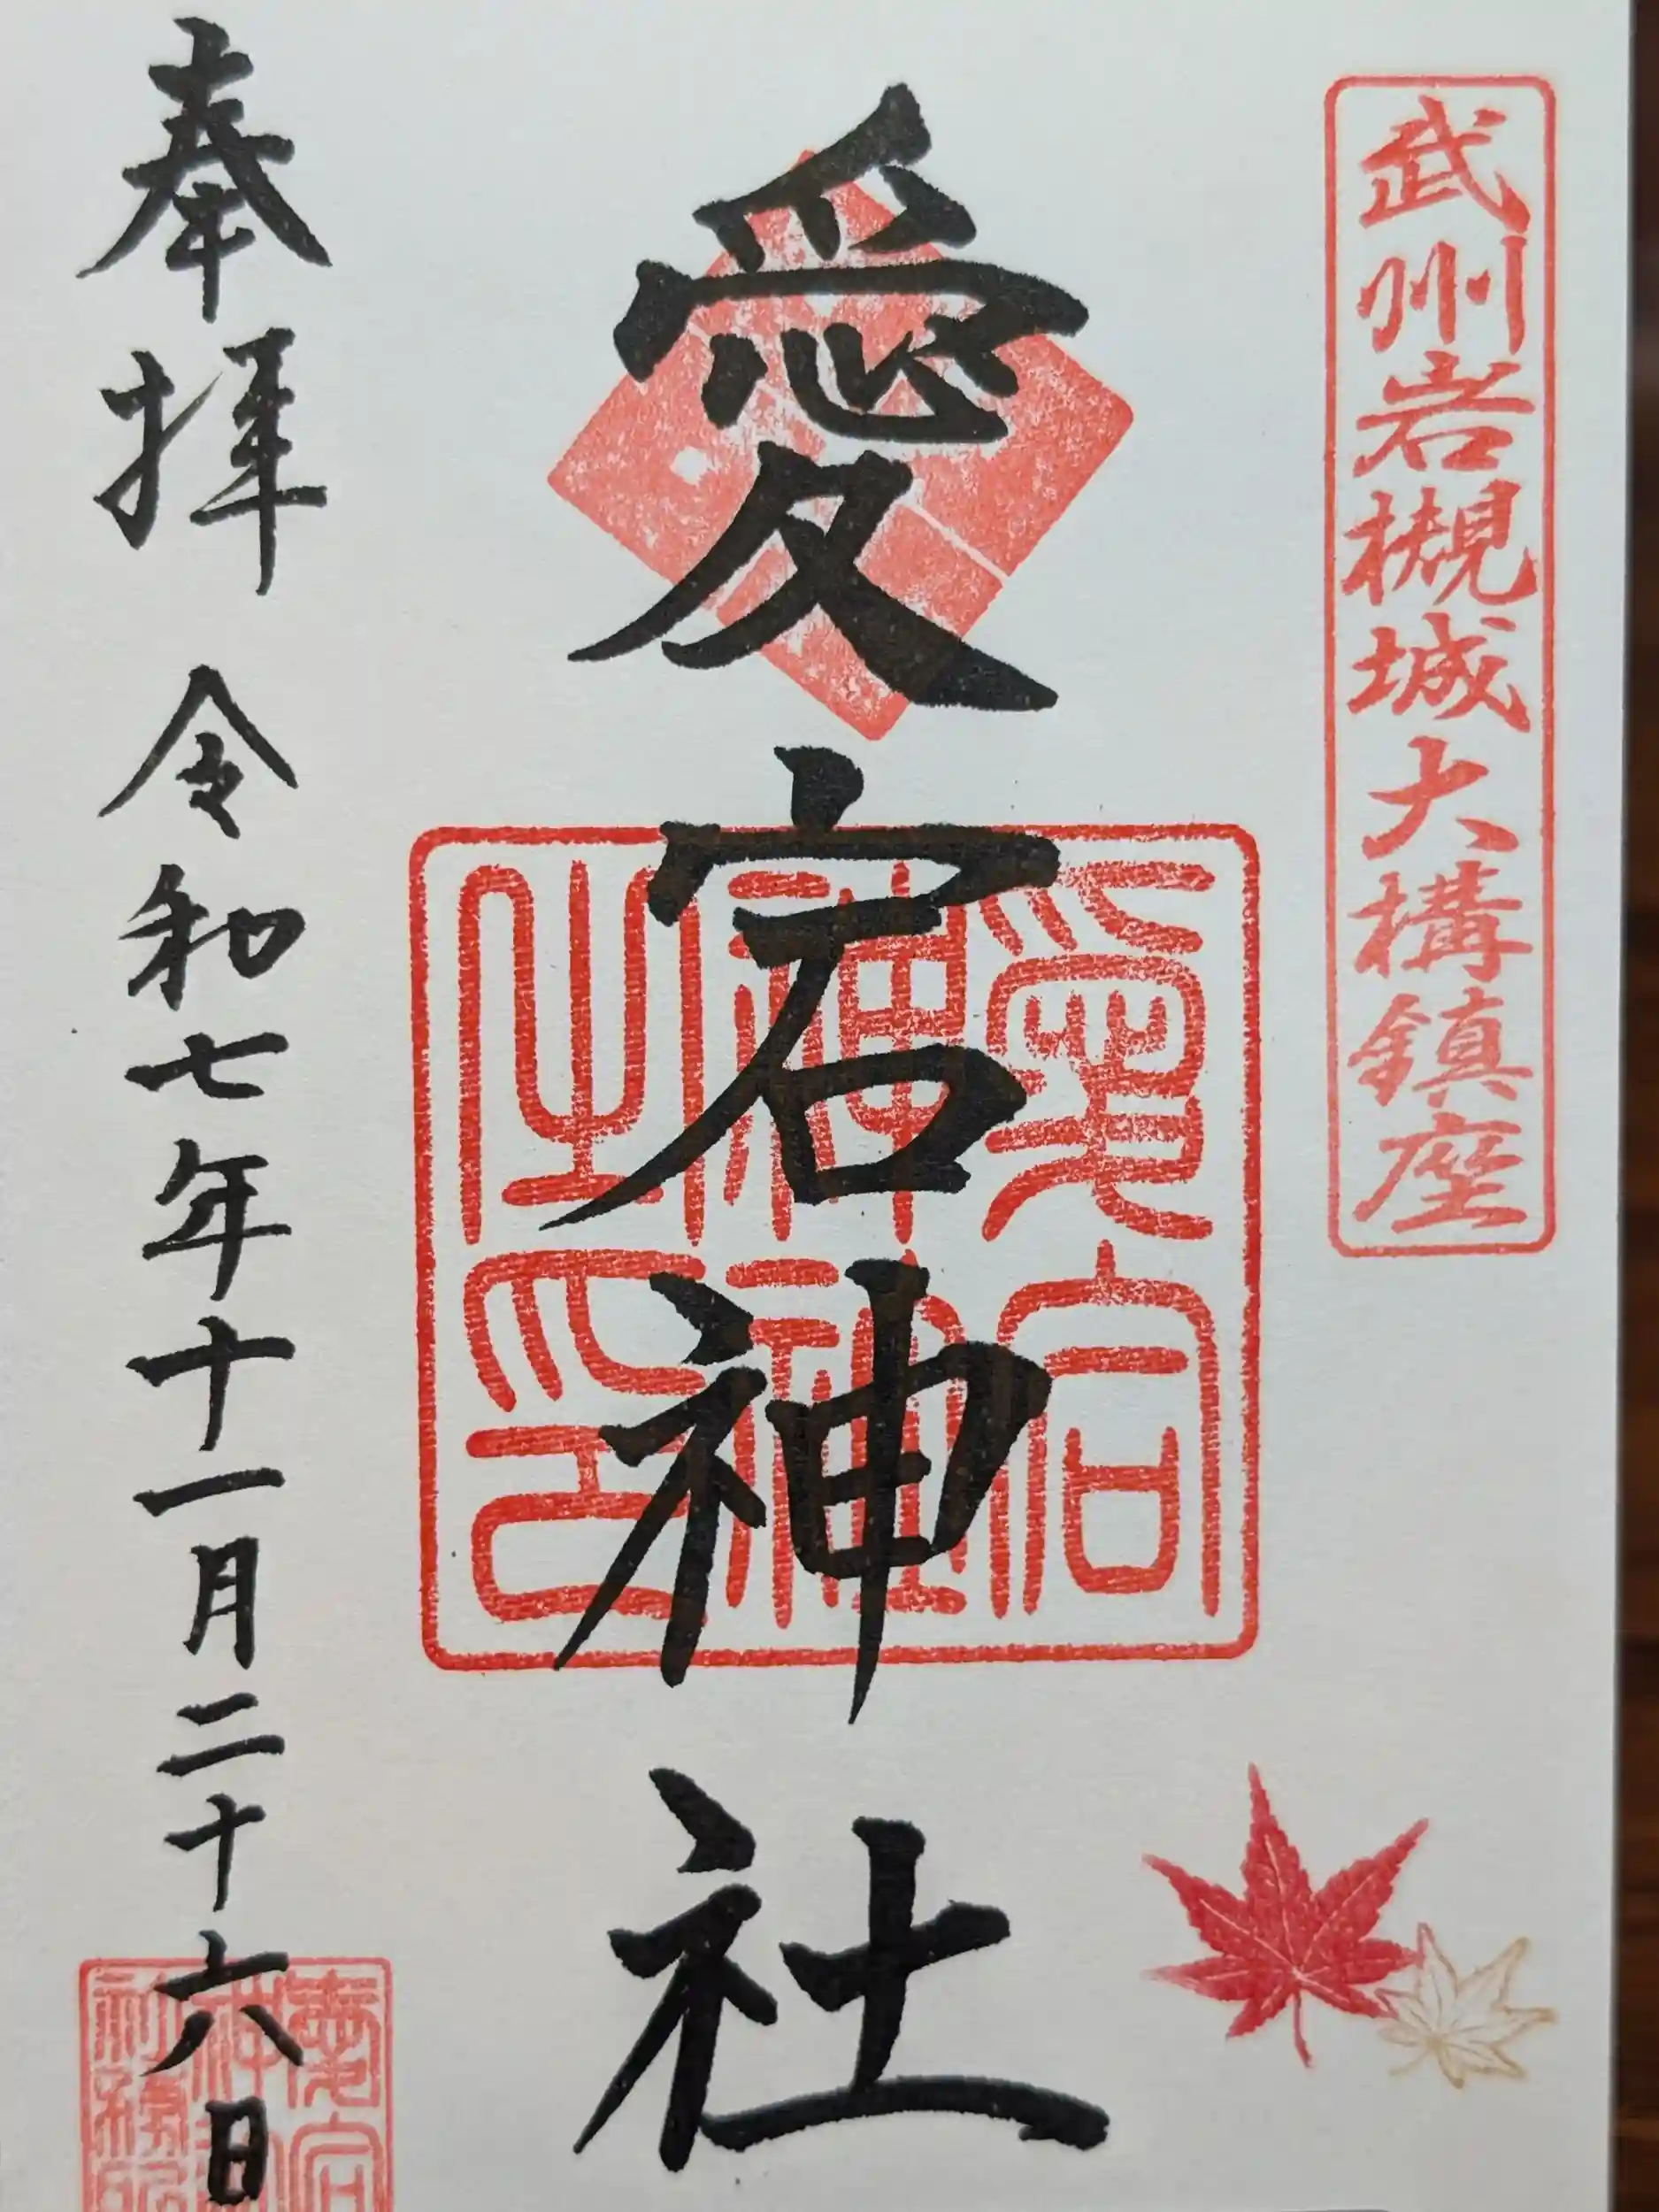 武州岩槻城大構鎮座
愛宕神社
愛宕
神社
之印
奉拝 令和七年十一月二十六日